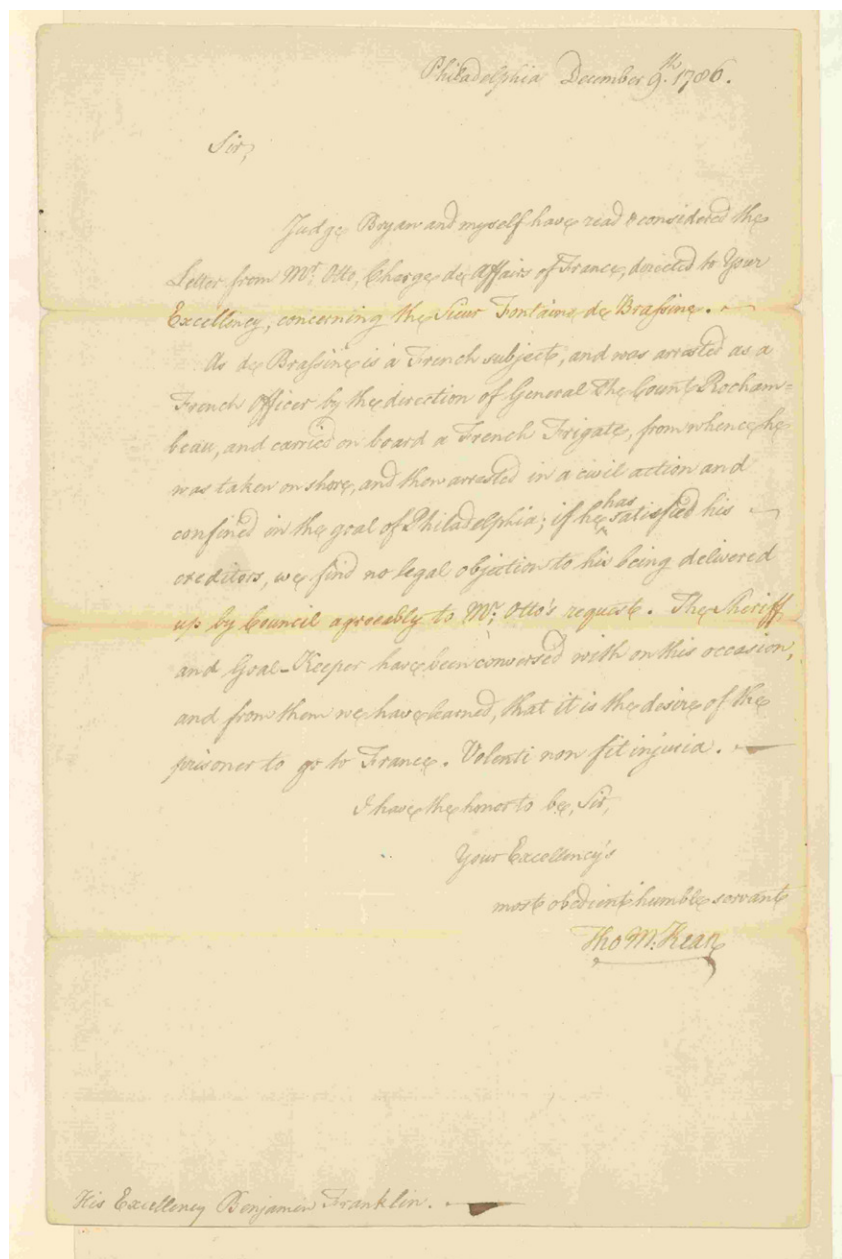 Philadelphia December 9.th 1786.
Sir,
Judge Bryan and myself have read & considered the
Letter from Mr. Otto, Charge de Affairs of France, directed to Your
Excellency, concerning the Sieur Fontaine de Brassine.
As de Brassine is a French subject, and was arrested as a
French Officer by the direction of General The Count Rocham=
beau, and carried on board a French Frigate, from whence he
was taken on shore, and then arrested in a civil action and
confined in the goal of Philadelphia; if he has satisfied his
creditors, we find no legal objection to his being delivered
up by Council agreeably to Mr. Otto's request. The Sheriff
and Goal-Keeper have been conversed with on this occasion,
and from them we have learned, that it is the desire of the
prisoner to go to France. Volenti non fit injuria.
I have the honor to be, Sir,
Your Excellency's
most obedient humble servant
Tho M.Kean
His Excellency Benjamin Franklin.